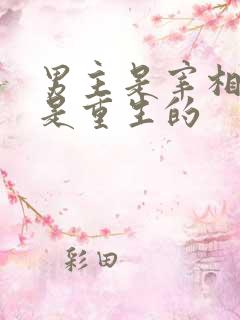 男主是宰相
是重生的
彩田